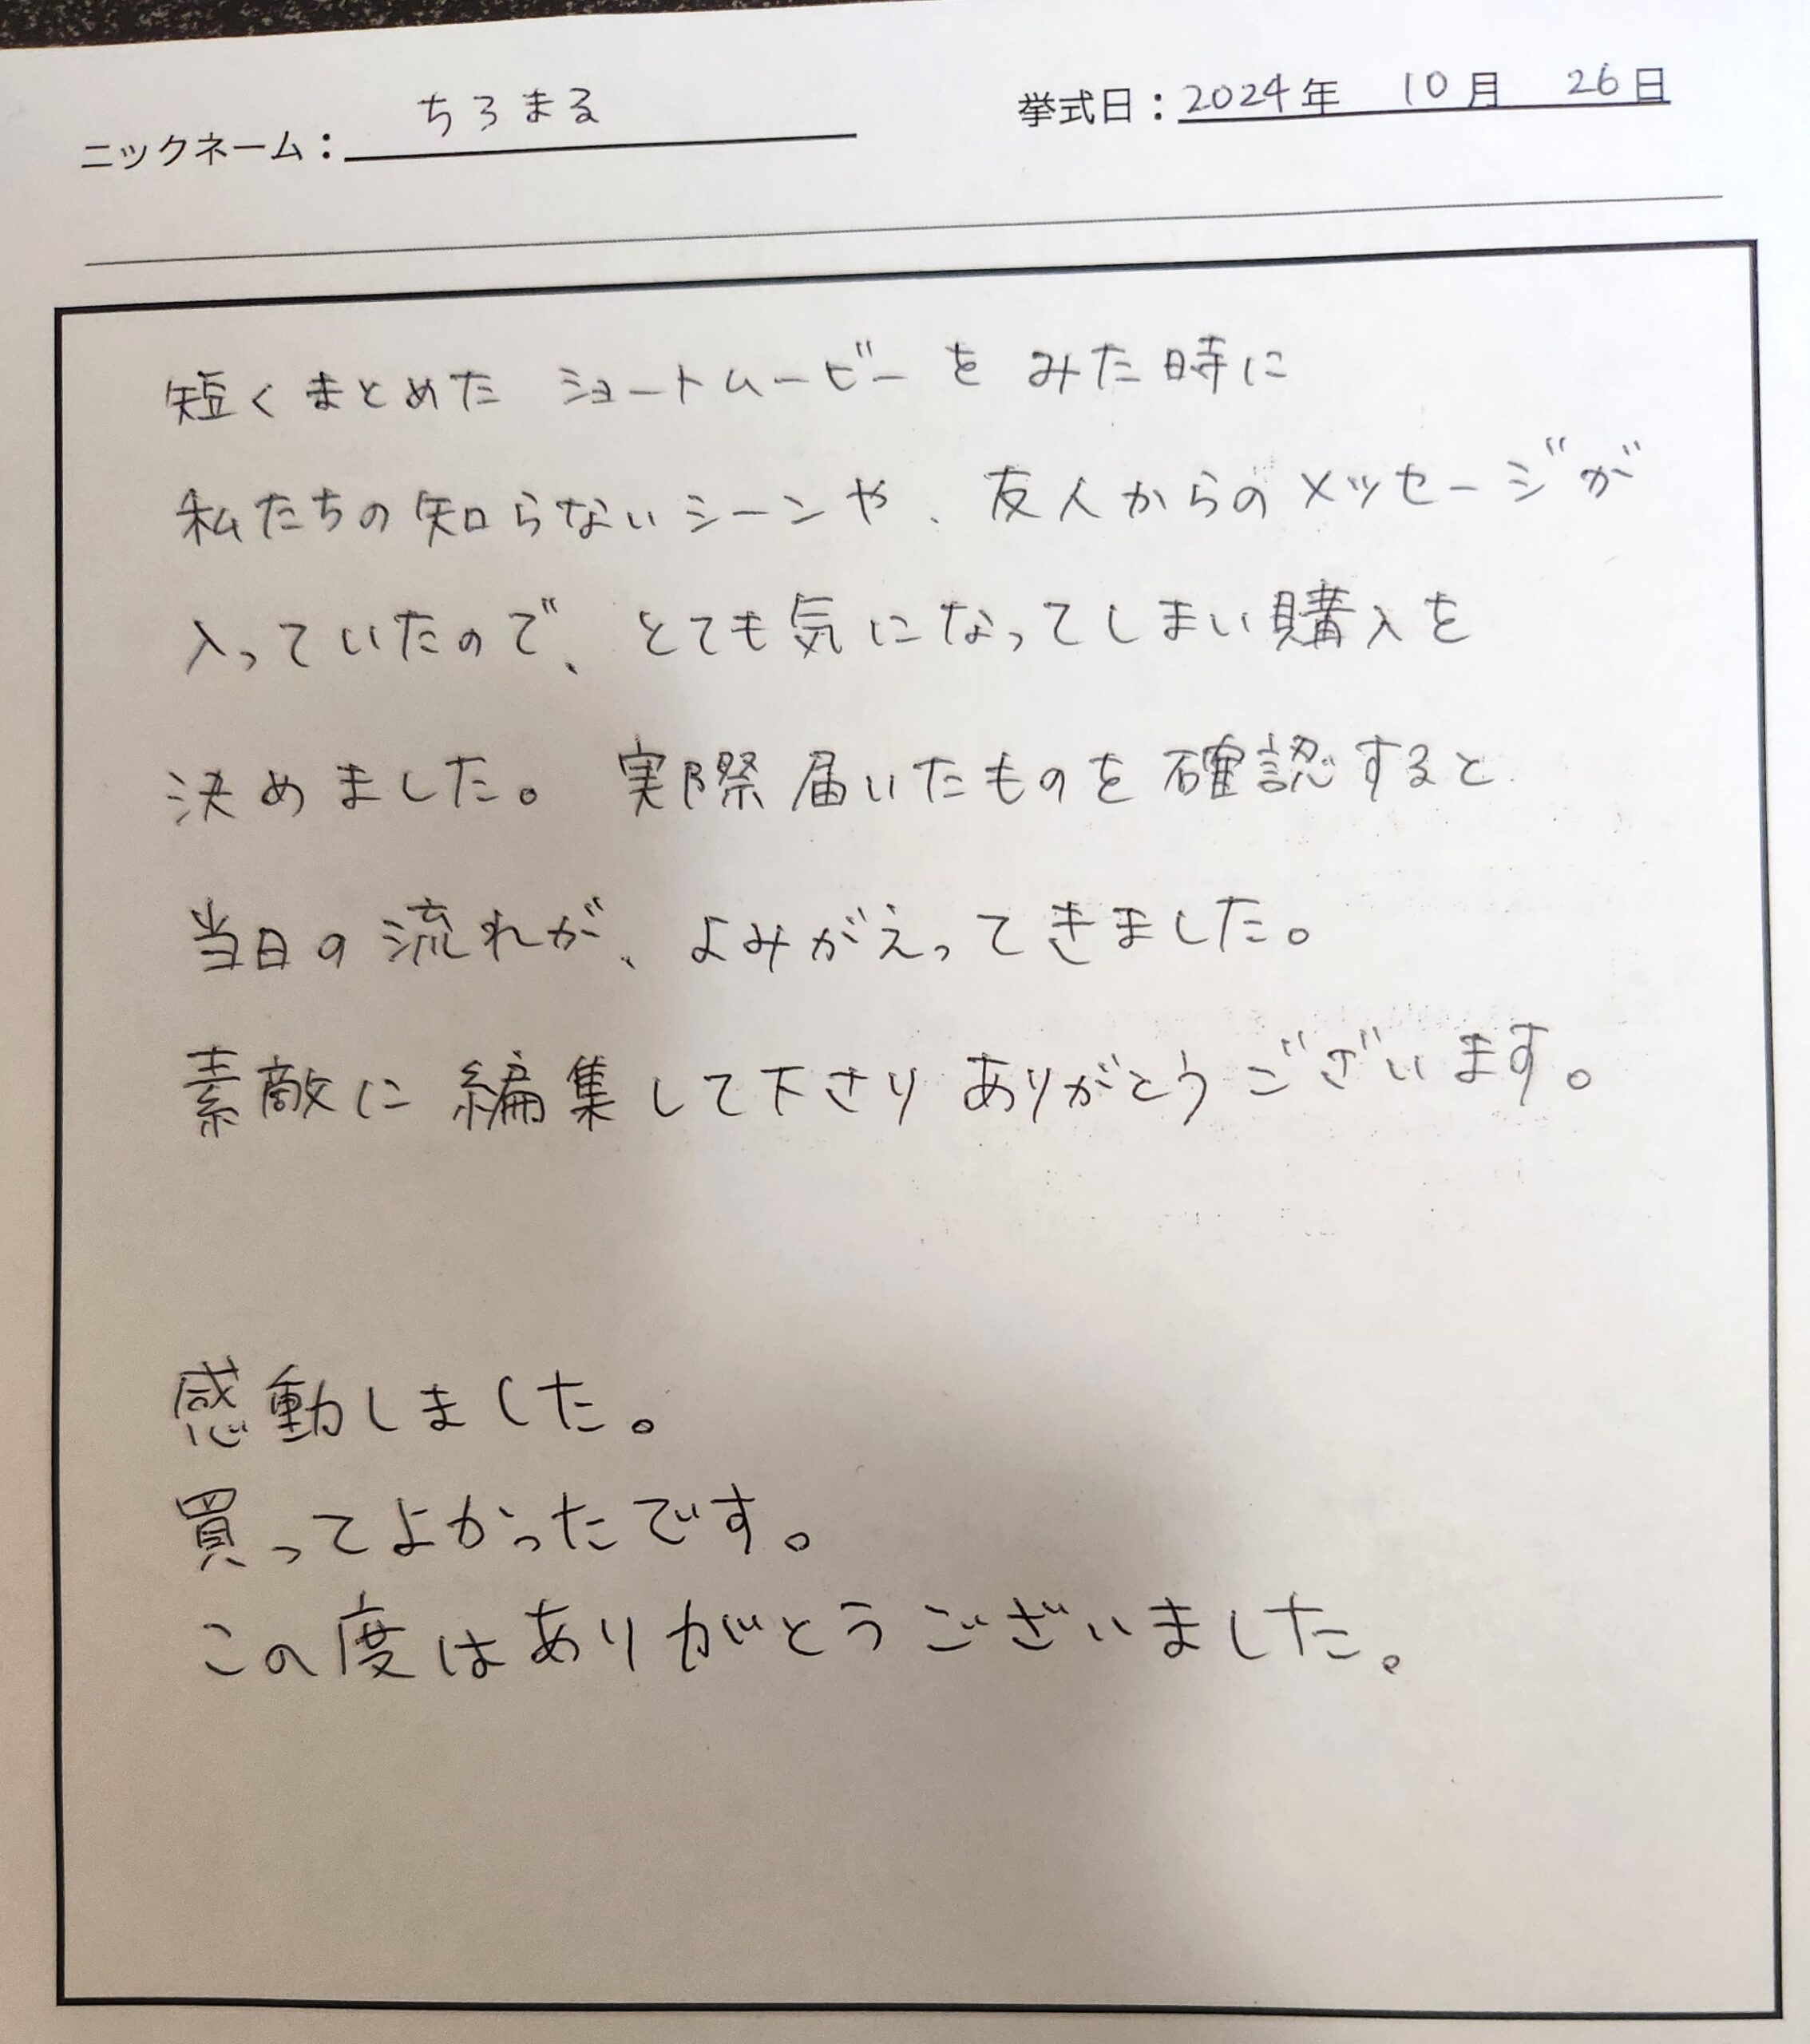 ニックネーム：ちろまる　挙式日：2024年 10月 26日
短くまとめた ショートムービーを みた時に
私たちの知らないシーンや、友人からのメッセージが
入っていたので、とても気になってしまい購入を
決めました。実際届いたものを確認すると
当日の流れが、よみがえってきました。
素敵に編集して下さり ありがとうございます。
感動しました。
買ってよかったです。
この度はありがとうございました。